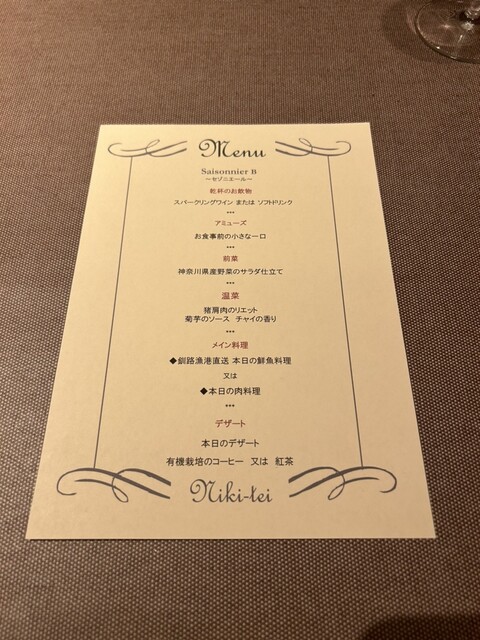 Menu
Saisonnier B
～セゾニエール～
乾杯のお飲物
スパークリングワイン または ソフトドリンク
***
アミューズ
お食事前の小さな一口
***
前菜
神奈川県産野菜のサラダ仕立て
***
温菜
猪肩肉のリエット
菊芋のソース チャイの香り
***
メイン料理
◆釧路漁港直送 本日の鮮魚料理
又は
◆本日の肉料理
***
デザート
本日のデザート
有機栽培のコーヒー 又は 紅茶
Niki-tei